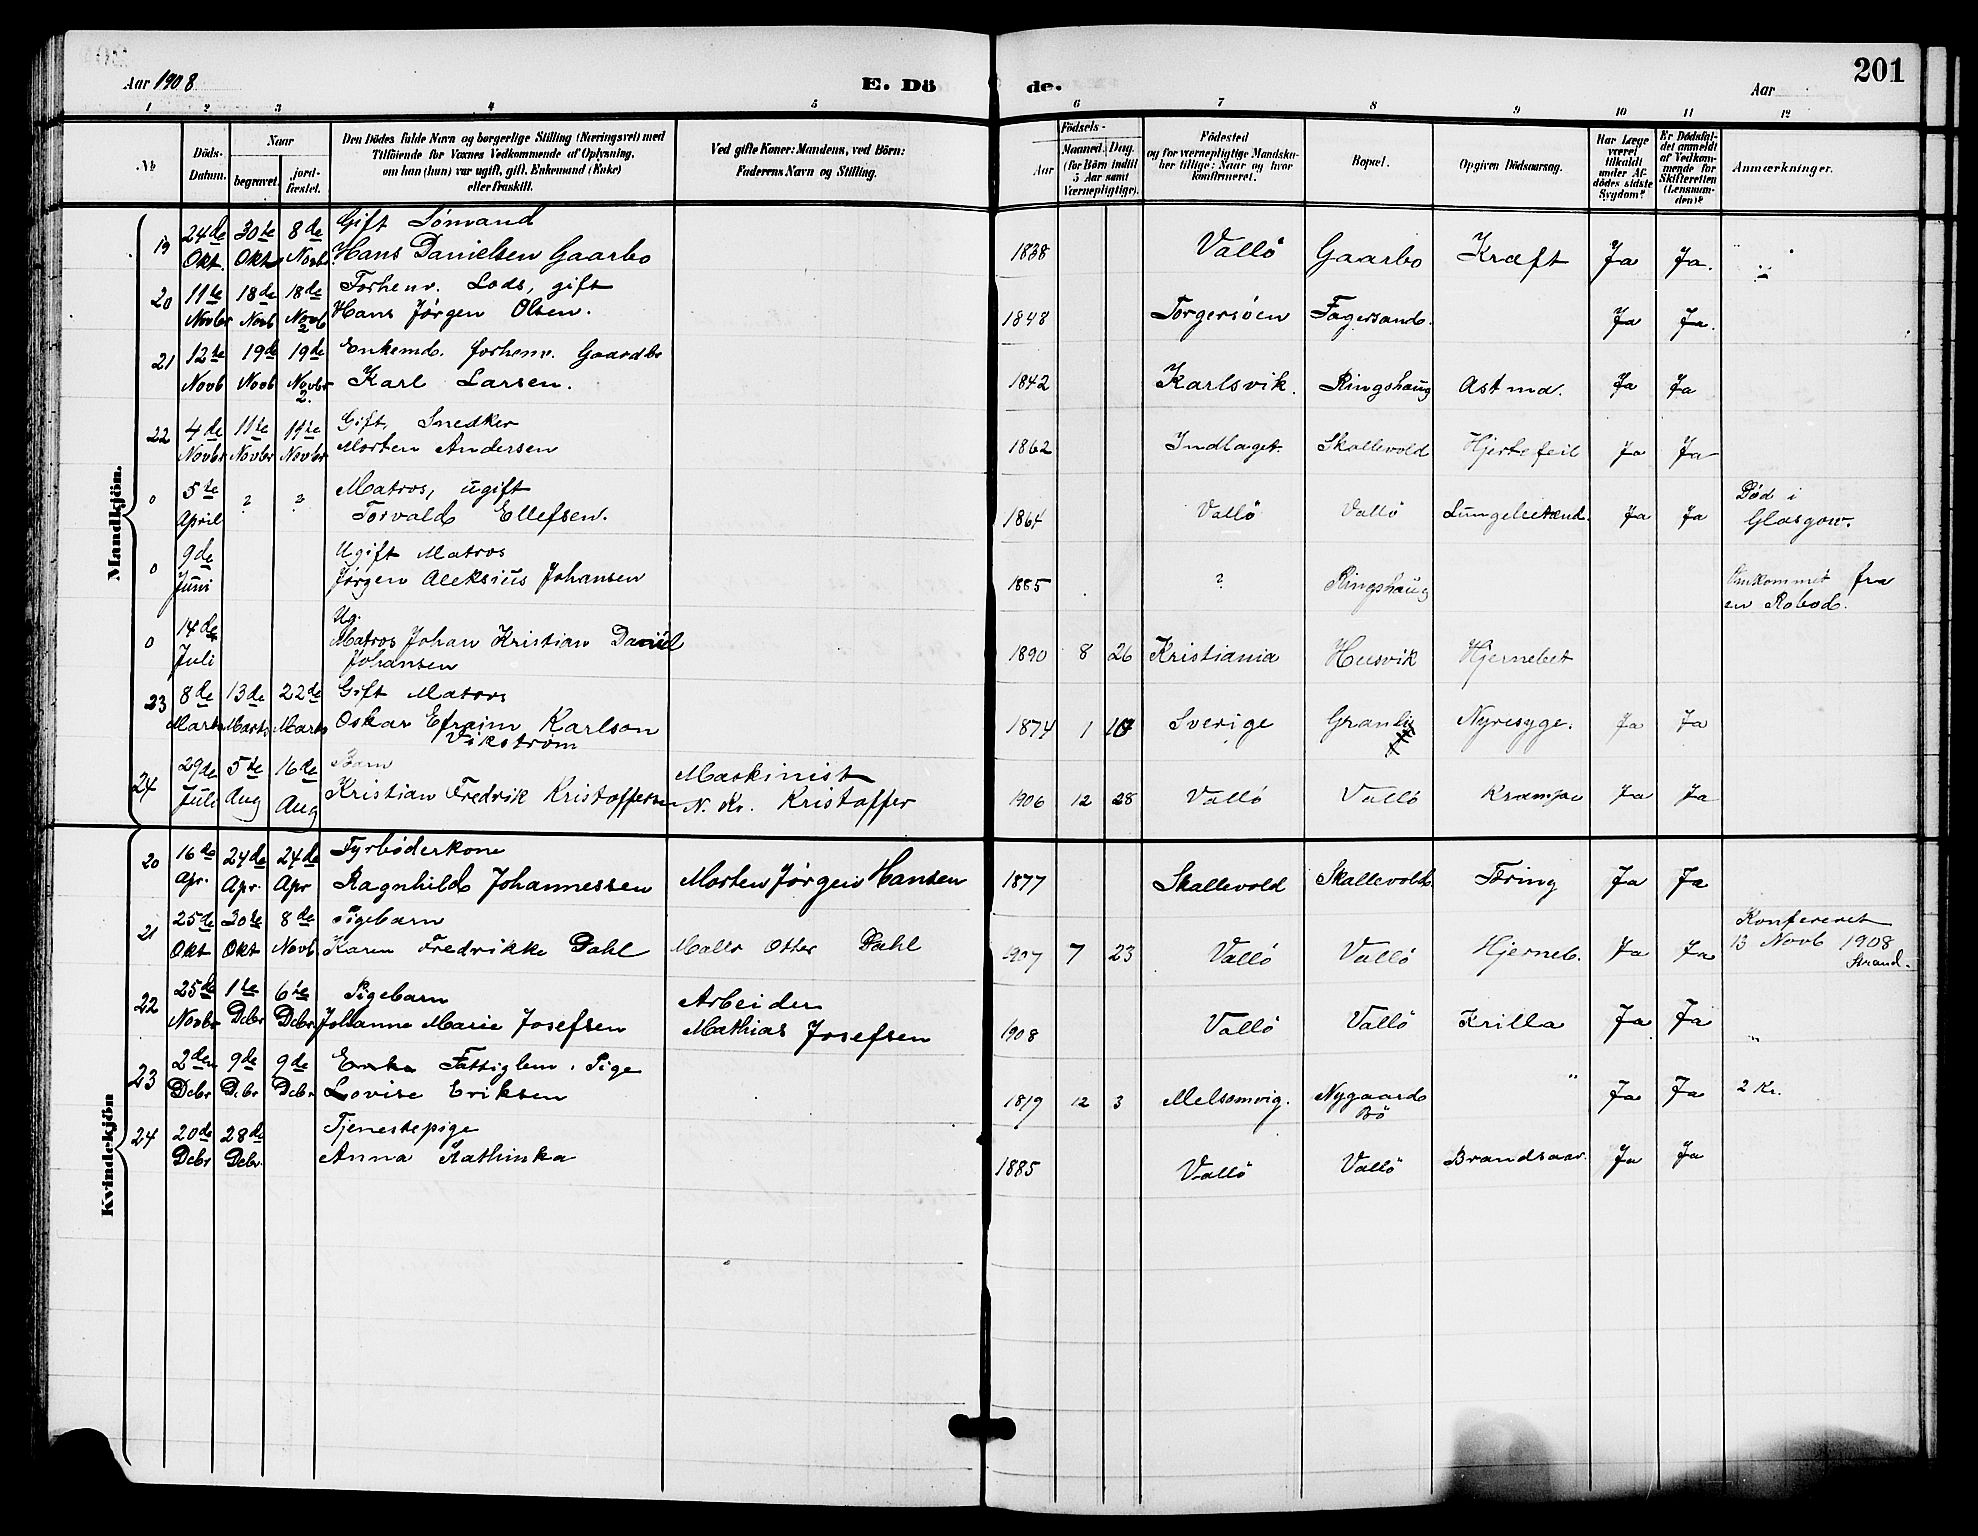 Aar 1908
E. Döde.
Aar
201
1 2 3 4 5 6 7 8 9 10 11 12
№
Döds-Datum.
Naar
begravet.
jord-fæstet.
Den Dödes fulde Navn og borgerlige Stilling (Næringsvei) med
Tilföiende for Voxnes Vedkommende af Oplysning,
om han (hun) var ugift, gift, Enkemand (Enke)
eller fraskilt.
Ved gifte Koner: Mandens, ved Börn:
Faderens Navn og Stilling.
Födsels-
Aar
Maaned. Dag.
(for Börn indtil
5 Aar samt
Værnepligtige).
Födested
og for værnepligtige Mandska-
ber tillige: Naar og hvor
konfirmeret.
Bopæl.
Opgiven Dödsaarsag.
Har Læge
været
tilkaldt
under Af-
dödes sidste
Sygdom?
Er Dödsfal-
det anmeldt
af Vedkom-
mende for
Skifteretten
(Lensman-
den)?
Anmærkninger.
Mandkjön.
19 24de Okt. 30te Okt. 8de Novbr Gift Sömand
Hans Danielsen Gaarbo 1838 Vallö Gaarbo Kræft Ja Ja.
20 11te Novbr 18de Novb 18de Novb 2 Forhenv. Lods, gift
Hans Jørgen Olsen. 1848 Torgersöen Fagersand. Ja Ja.
21 12te Novb 19de Novb 19de Novbr 2. Enkemd. forhenv. Gaardbr
Karl Larsen. 1842 Karlsvik. Ringshaug Astma. Ja Ja
22 4de Novbr 11te Novbr 11te Novbr Gift, Snedker
Morten Andersen 1862 Indlaget. Skallevold Hjertefeil Ja Ja
0 5te April ? ? Matros, ugift
Torvald Ellefsen. 1864 Vallö Vallö Lungebetænd. Ja Ja Död i
Glasgow.
0 9de Juni Ugift Matros
Jørgen Aleksius Johansen 1885 ? Ringshaug Omkommet fra
en Robaad.
0 14de Juli Ug.
Matros Johan Kristian Daniel
Johansen 1890 8 26 Kristiania Husvik Hjernebet
23 8de Marts 13de Marts 22de Marts Gift Matros
Oskar Efraim Karlson
Vikström 1874 1 10 Sverige Granli Nyresyge. Ja Ja
24 29de Juli 5te Aug 16de Aug Barn
Kristian Fredrik Kristoffersen Maskinist
N. Kr. Kristoffer 1906 12 28 Vallö Vallö Krampe Ja Ja
Kvindekjön
20 16de Apr. 24de Apr. 24de Apr Fyrböderkone
Ragnhild Johannessen Morten Jørgen Hansen 1877 Skallevold Skallevold. Tæring Ja Ja
21 25de Okt 30te Okt 8de Novb. Pigebarn
Karen Fredrikke Dahl Otter Dahl 1907 7 23 Vallö Vallö Hjerneb. Ja Ja Konfereret
13 Novb 1908
Strand.
22 25de Novbr 1te Debr 6te Debr Pigebarn
Johanne Marie Josefsen Arbeider
Mathias Josefsen 1908 Vallö Vallö Krilla Ja Ja
23 2den Debr 9de Debr 9de Debr Fattiglem. Pige
Lovise Eriksen 1819 12 3 Melsomvig. Nygaard
Bö " Ja Ja 2 Kr.
24 20de Debr 28de Debr. Tjenestepige
Anna Kathinka 1885 Vallö Vallö Brandsaar. Ja Ja